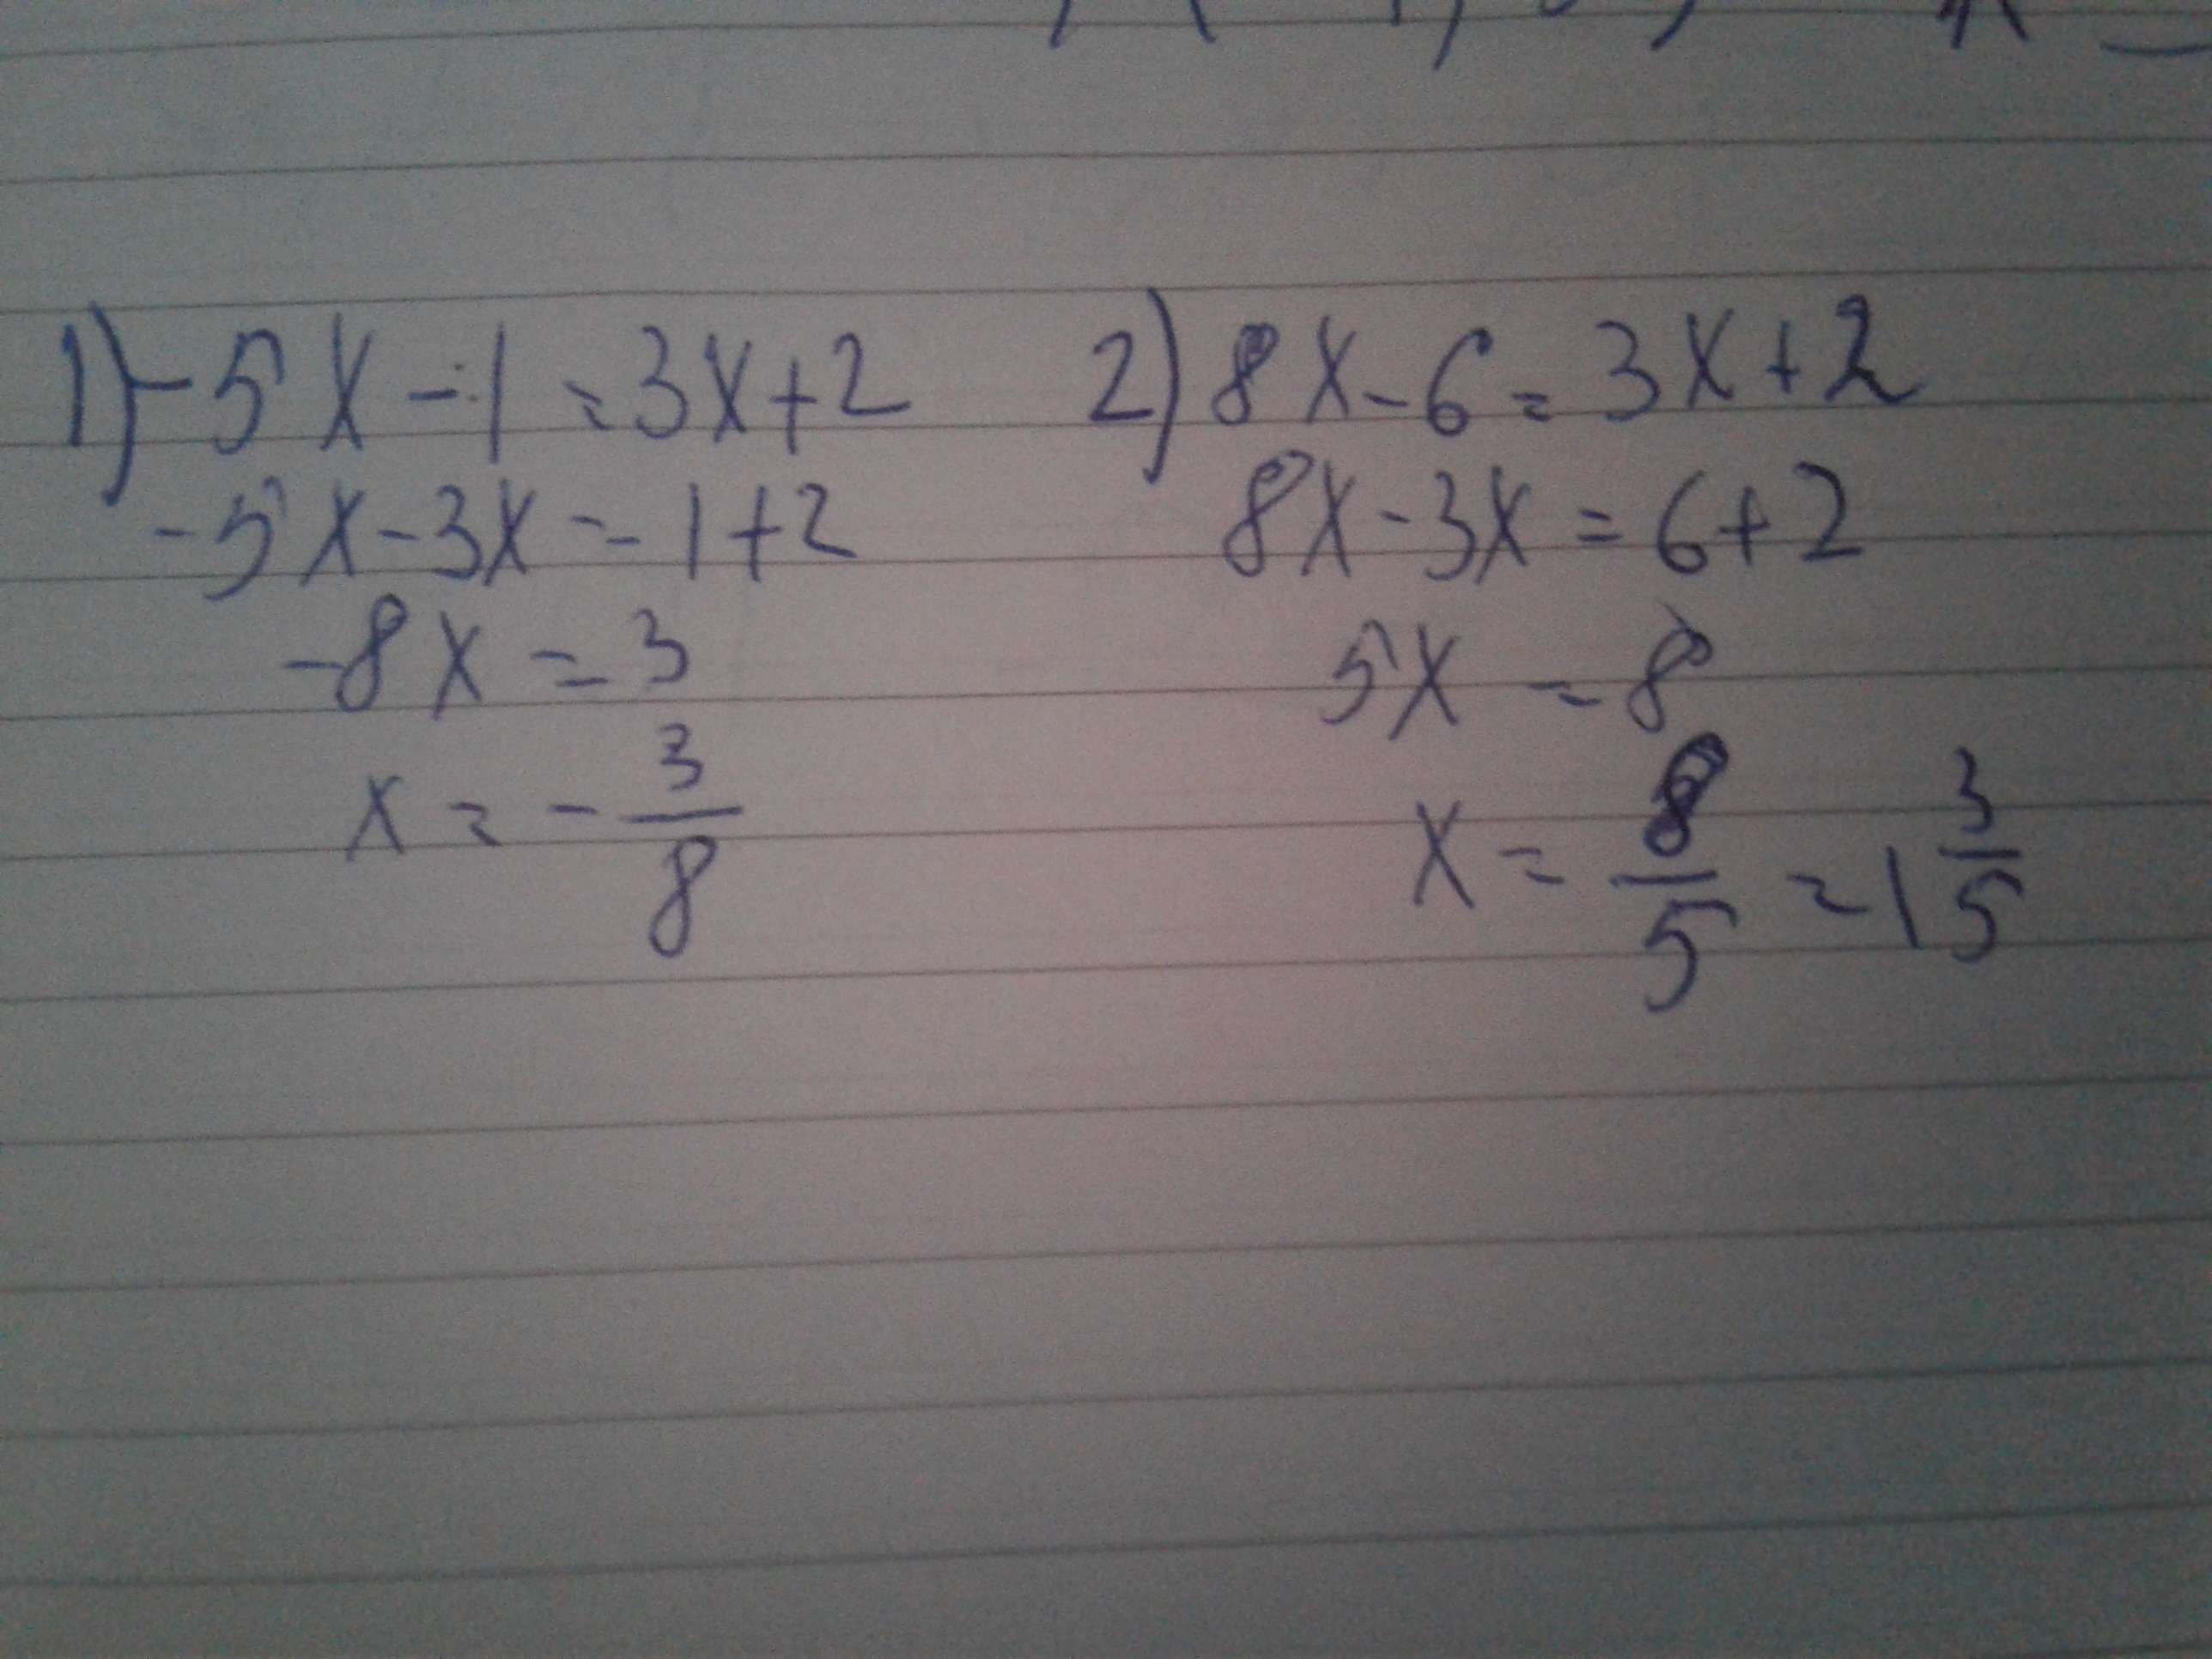 1) -5x-1=3x+2
-5x-3x=1+2
-8x=3
x=-3/8
2) 8x-6=3x+2
8x-3x=6+2
5x=8
x=8/5=1 3/5